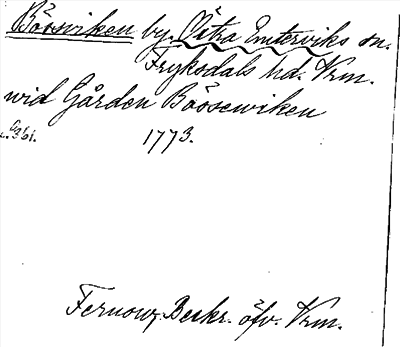 Böösviken by. Östra Emterviks sn.
Fryksdals hd. Vrm.
wid Gården Böösewiken
1773.
s. 361.
Fernow, Beskr. öfv. Vrm.